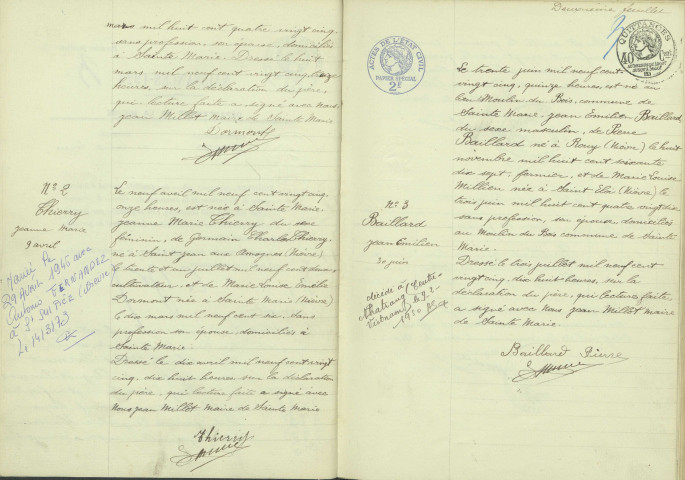 mars mil huit cent quatre vingt cinq,
sans profession, son épouse, domiciliés
à Sainte Marie. Dressé le huit
mars mil neuf cent vingt cinq
heures, sur la déclaration du père,
qui lecture faite a signé avec Nous
Jean Millot Maire de Sainte Marie
Dormont
N° 2
Thierry
Jeanne Marie
9 avril
29 avril 1946 avec
à St Sulpice (Nièvre)
Le 14/3/73
Le neuf avril mil neuf cent vingt cinq,
onze heures, est née à Sainte Marie,
Jeanne Marie Thierry du sexe
féminin, de Germain Charles Thierry,
né à Saint Jean aux Amognes (Nièvre)
le trente et un juillet mil neuf cent deux,
cultivateur, et de Marie Louise Emélie
Dormont née à Sainte Marie (Nièvre)
le dix mars mil neuf cent six, sans
profession son épouse domiciliés à
Sainte Marie.
Dressé le dix avril mil neuf cent vingt
cinq, dix huit heures sur la déclaration
du père, qui lecture faite a signé avec
Nous Jean Millot Maire de Sainte Marie
Thierry
Deuxième feuillet
ACTES DE L'ÉTAT CIVIL
PAPIER SPÉCIAL
2F
QUITTANCES
40
N° 3
Baillard
Jean Emilien
30 juin
décédé à
Vietnam) le 9-2-
1950
Le trente juin mil neuf cent
vingt cinq, quinze heures, est né au
lieu Moulin du Bois, commune de
Sainte Marie, Jean Emilien Baillard
du sexe masculin, de Pierre
Baillard né à Rouy (Nièvre) le huit
novembre mil huit cent soixante
dix sept, fermier, et de Marie Louise
Millien née à Saint Eloi (Nièvre) le
trois juin mil huit cent quatre vingt dix
sans profession, son épouse domiciliés
au Moulin du Bois commune de Sainte
Marie.
Dressé le trois juillet mil neuf cent
vingt cinq, dix huit heures, sur la
déclaration du père, qui lecture faite,
a signé avec Nous Jean Millot Maire
de Sainte Marie.
Baillard Pierre